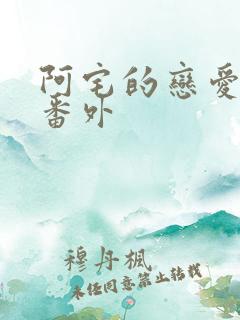 阿宅的戀愛
番外
穆丹楓
未经同意禁止转载